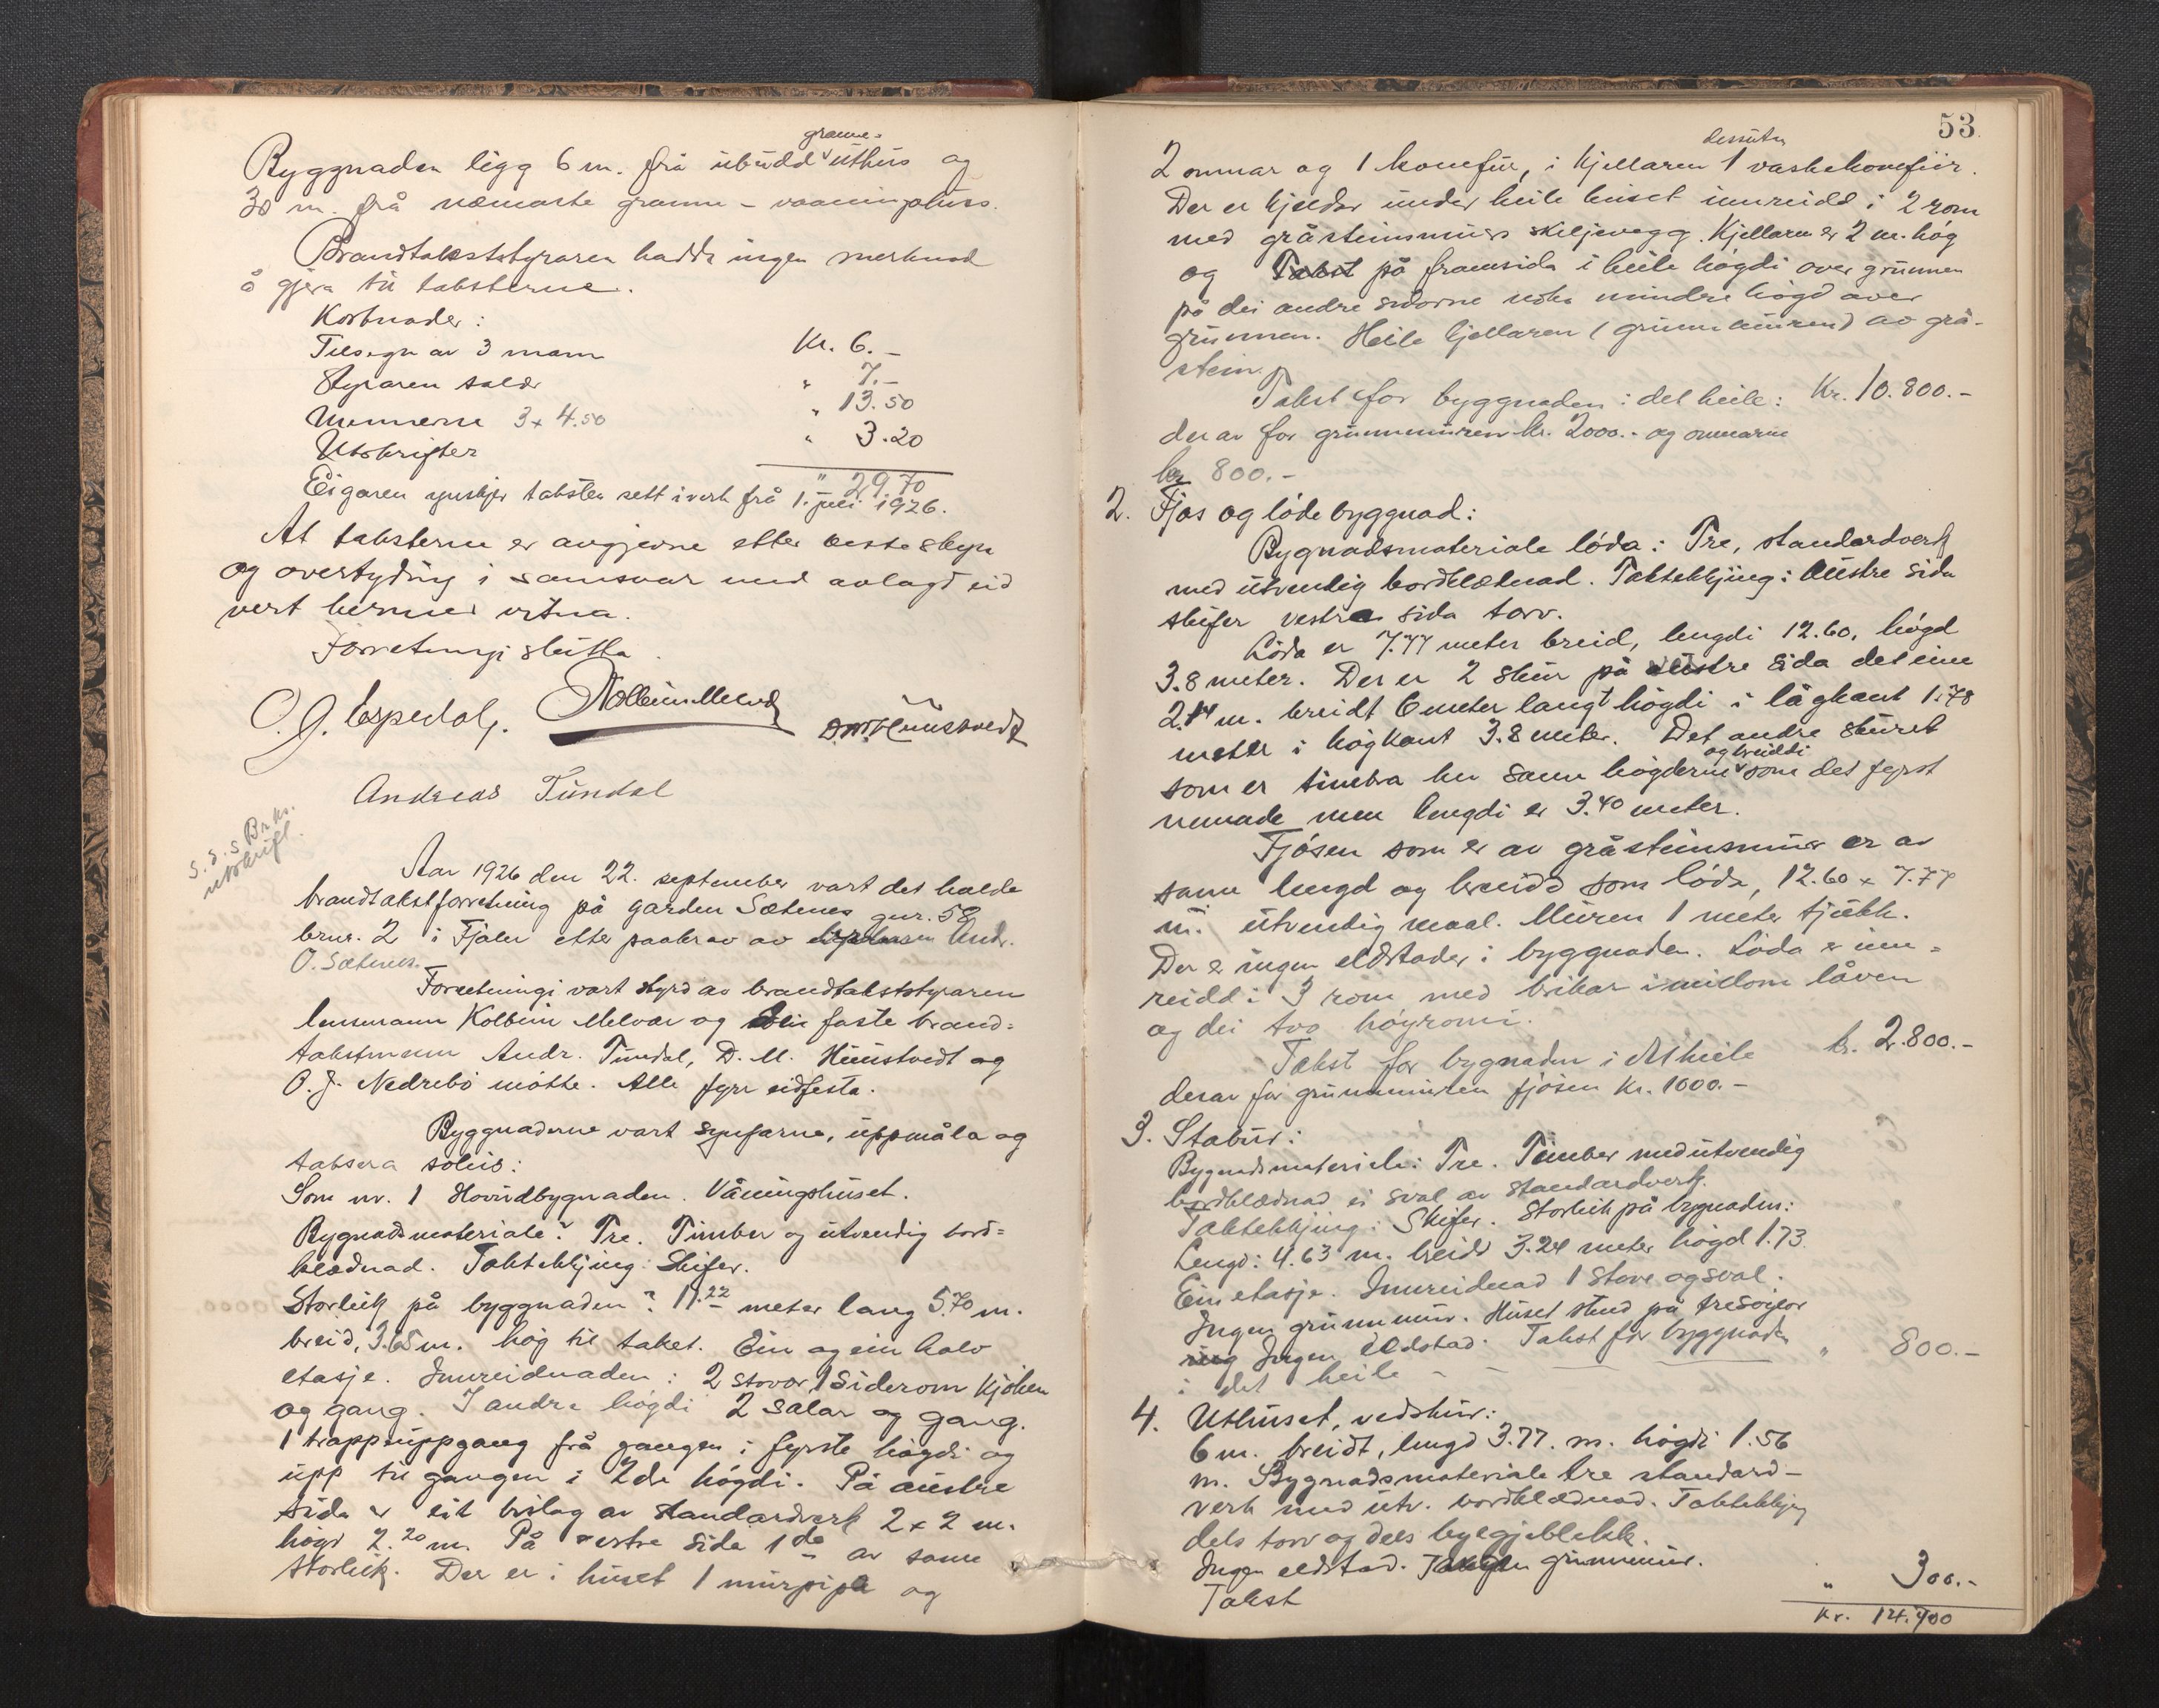 granne-
Byggnaden ligg 6 m. frå ubudd uthus og
30 m. frå næmaste granne-vaaningshus.
Brandtakststyraren hadde ingen merknad
å gjera til taksterne.
Kostnader:
Tilsegn av 3 mann Kr. 6.-
Styraren salær " 7.-
Mennerne 3 x 4.50 " 13.50
Utskrifter " 3.20
" 29.70
Eigaren ynskjer taksten sett i verk frå 1. juli 1926.
At taksterne er avgjevne etter beste skyn
og overtyding i samsvar med avlagt eid
vert hermed vitna.
Forretningi slutta.
O. J. Espedal. Kolbein Melvær D. M. Hunstvedt
Andreas Tundal
S. S. S. Br.kr.
utskrift.
Aar 1926 den 22. september vart det halde
brandtakstforretning på garden Sætenes gnr. 58
brnr. 2 i Fjaler etter paakrav av Andr.
O. Sætenes.
Forretningi vart styrd av brandtakststyraren
lensmann Kolbein Melvær og dei faste brand=
takstmenn Andr. Tundal, D. M. Hunstvedt og
O. J. Nedrebö mötte. Alle fyrr eidfesta.
Byggnaderne vart synfarne, uppmåla og
taksera soleis:
Som nr. 1 Hovudbygnaden. Våningshuset.
Bygnadsmateriale: Tre. Timber og utvendig bord=
klædnad. Taktekkjing: Skifer.
Storleik på byggnaden: 11.22 meter lang 5.70 m.
breid, 3.65 m. hög til taket. Ein og ein halv
etasje. Innreidnaden: 2 stovor, 1 siderom kjöken
og gang. I andre högdi 2 salar og gang.
1 trappeuppgang frå gangen i fyrste högdi og
upp til gangen i 2de högdi. På austre
sida er eit bislag av standardverk 2 x 2 m.
högd 2.20 m. På vestre side 1 do av same
storleik. Der er i huset 1 murpipe og
53
dessutan
2 omnar og 1 komfur, i kjellaren 1 vaskekomfur.
Der er kjellar under heile huset innreidd i 2 rom
med gråsteinsmurs skiljevegg. Kjellaren er 2 m. hög
og på framsida i heile högdi over grunnen
på dei andre sidorne noko mindre högd over
grunnen. Heile kjellaren (grunnmuren) av grå-
stein.
Takst for byggnaden i det heile: Kr. 10.800.-
derav for grunnmuren kr. 2000.- og omnarne
kr. 800.-
2. Fjos og löde byggnad:
Bygnadsmateriale löda: Tre, standardverk
med utvendig bordklædnad. Taktekkjing: Austre sida
skifer vestre sida torv.
Löda er 7.77 meter breid, lengdi 12.60, högd
3.8 meter. Der er 2 skur på sida det eine
2.14 m. breidt 6 meter langt högdi i lågkant 1.78
meter i högkant 3.8 meter. Det andre skuret
og breiddi
som er timbra hev same högderne som det fyrst
nemnde men lengdi er 3.40 meter.
Fjösen som er av gråsteinsmur er av
same lengd og breidd som löda, 12.60 x 7.77
m. utvendig maal. Muren 1 meter tjukk.
Der er ingen eldstader i byggnaden. Löda er inn=
reidd i 3 rom med brikar imillom låven
og dei tvo höyromi.
Takst for bygnaden i det heile kr. 2.800.-
derav for grunnmuren fjösen kr. 1000.-
3. Stabur:
Bygnadsmateriale: Tre. Timber med utvendig
bordklædnad ei sval av standardverk.
Taktekkjing: Skifer. Storleik på bygnaden:
Lengd: 4.63 m. breidd 3.24 meter högd 1.73.
Ein etasje. Innreidnad 1 stove og sval.
Ingen grunnmur. Huset stend på tresöylor
Ingen eldstad. Takst for byggnaden
i det heile - - " 800.-
4. Uthuset, vedskur:
6 m. breidt, lengd 3.77. m. högdi 1.56
m. Bygnadsmateriale tre standard-
verk med utv. bordklædnad. Taktekkjing
dels torv og dels bylgjeblekk.
Ingen eldstad. Ingen grunnmur.
Takst " 300.-
Kr. 14.700